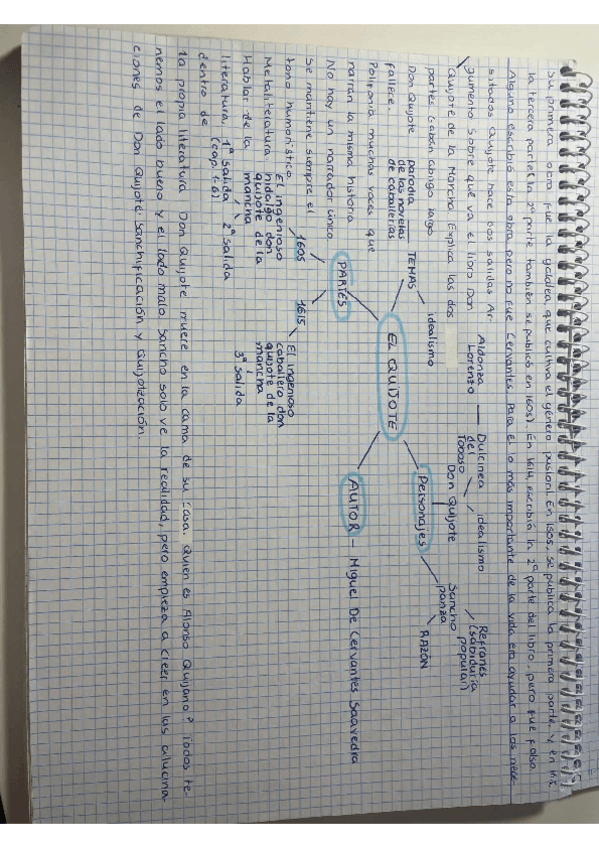 Su primera obra fue la galatea que cultiva el género pastoril. En 1505, se publica la primera parte, y en 1615
la tercera parte (la 2ª parte también se publicó en 1605). En 1614, escribió la 2ª parte del libro, pero fue falso.
Alguno escribió esta obra pero no fue Cervantes. Para él lo más importante de la vida era ayudar a los nece-
sitados. Quijote hace dos salidas. Ar-
gumento Sobre que va el libro Don
Quijote de la Mancha. Explica las dos
partes
Don Quijote
fallece.
Polifonía muchas voces que
narran la misma historia
No hay un narrador único
Se mantiene siempre el
tono humorístico
Metaliteratura
Hablar de la
literatura
dentro de
la propia literatura. Don Quijote muere en la cama de su casa. Quien es Alonso Quijano? Todos te-
nemos el lado bueno y el lado malo. Sancho solo ve la realidad, pero empieza a creer en las alucina-
ciones de Don Quijote. Sanchificación y Quijotización.
EL QUIJOTE
TEMAS
parodia
de las novelas
de caballerías
idealismo
Personajes
Don Quijote
idealismo
Dulcinea
del
Toboso
Aldonza
Lorenzo
Sancho
panza
Refranes
(sabiduría
popular)
RAZÓN
PARTES
1605
El ingenioso
hidalgo don
quijote de la
mancha
1ª salida
(cap. 1-6)
2ª salida
1615
El ingenioso
caballero don
quijote de la
mancha
3ª salida
AUTOR - Miguel De Cervantes Saavedra